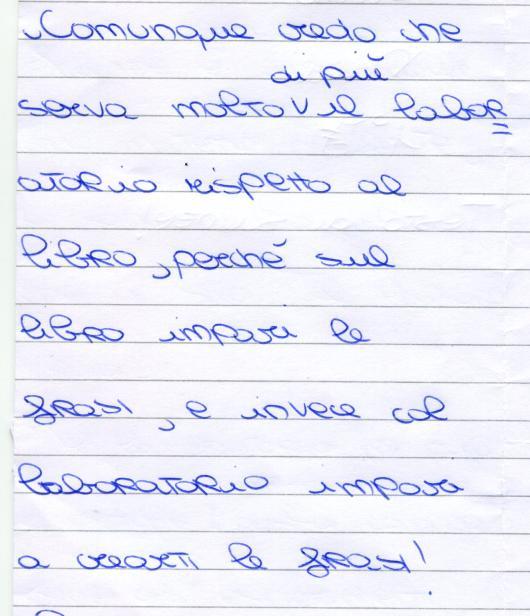 Comunque credo che
di più
serva molto V il labor=
atorio rispetto al
libro, perché sul
libro impari le
frasi, e invece col
laboratorio impari
a crearti le frasi!